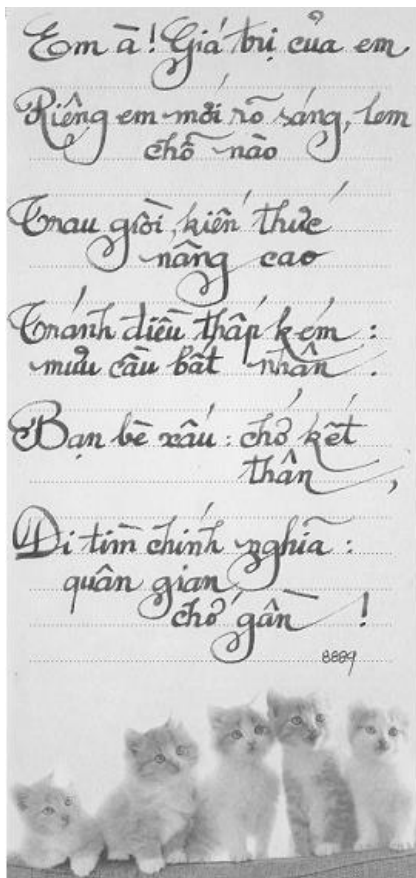 Em à! Giá trị của em
Riêng em mới rõ sáng, lem
chỗ nào
Trau giồi, kiến thức
nâng cao
Tránh điều thấp kém :
mưu cầu bất nhân.
Bạn bè xấu : chớ kết
thân,
Đi tìm chính nghĩa :
quân gian
chớ gần !
8889